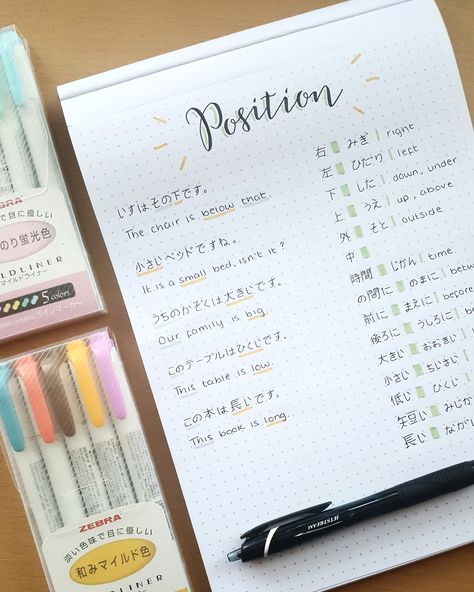 Position
いすはその下です。
The chair is below that.
小さいベッドですね。
It is a small bed, isn't it?
うちのかぞくは大きいです。
Our family is big.
このテーブルはひくいです。
This table is low.
この本は長いです。
This book is long.
右 みぎ right
左 ひだり left
下 した down, under
上 うえ up, above
外 そと outside
中
時間 じかん time
の間に のまに
前に まえに before
後ろに うしろに
大きい おおきい
小さい ちいさい
低い ひくい
短い みじか
長い ながい
ZEBRA
で目に優しい
のり蛍光色
LDLINER
マイルドライナー
5 colors
ラインマーカー
ZEBRA
淡い色味で目に優しい
和みマイルド色
DLINER
マイルドライナー
JETSTREAM